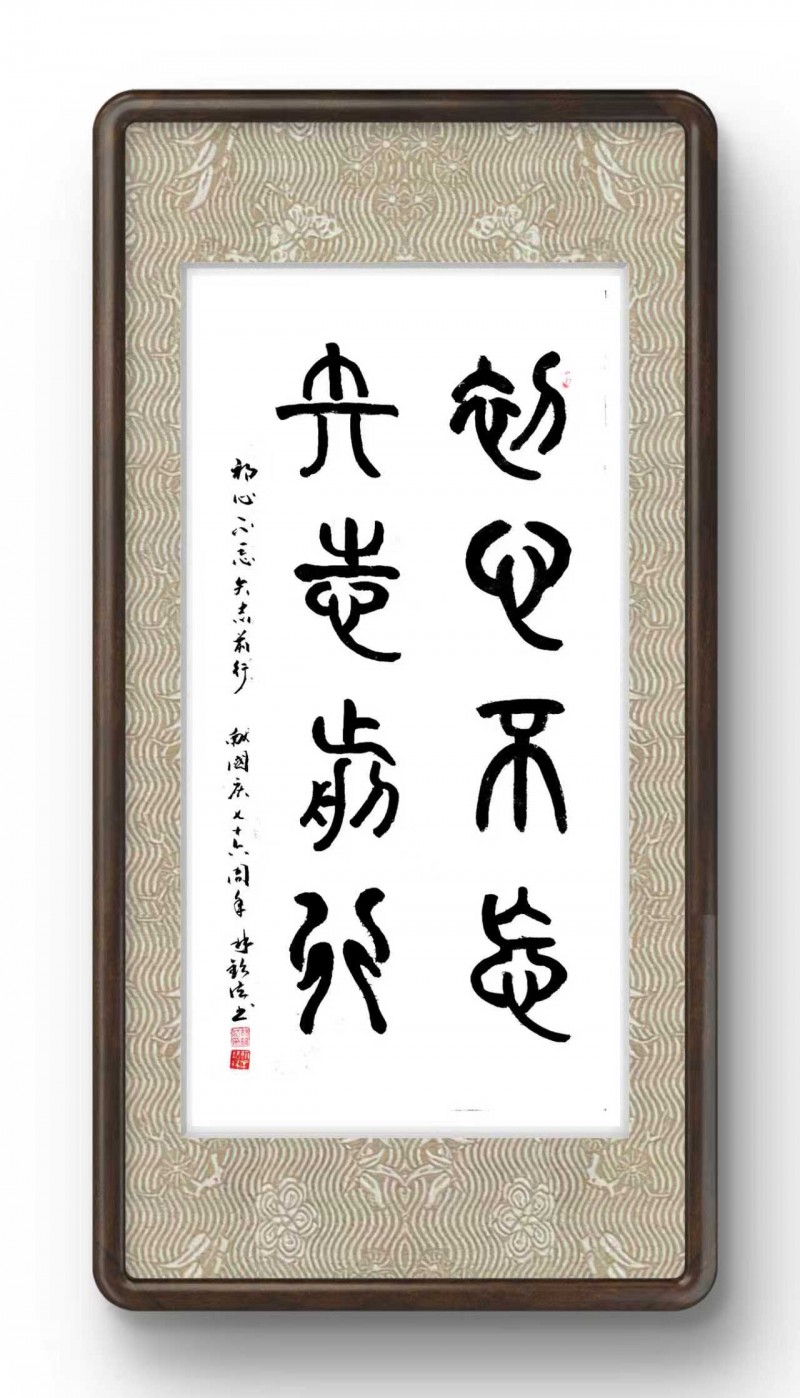 初心不忘
矢志前行
初心不忘矢志前行 献國庆七十六周年 书